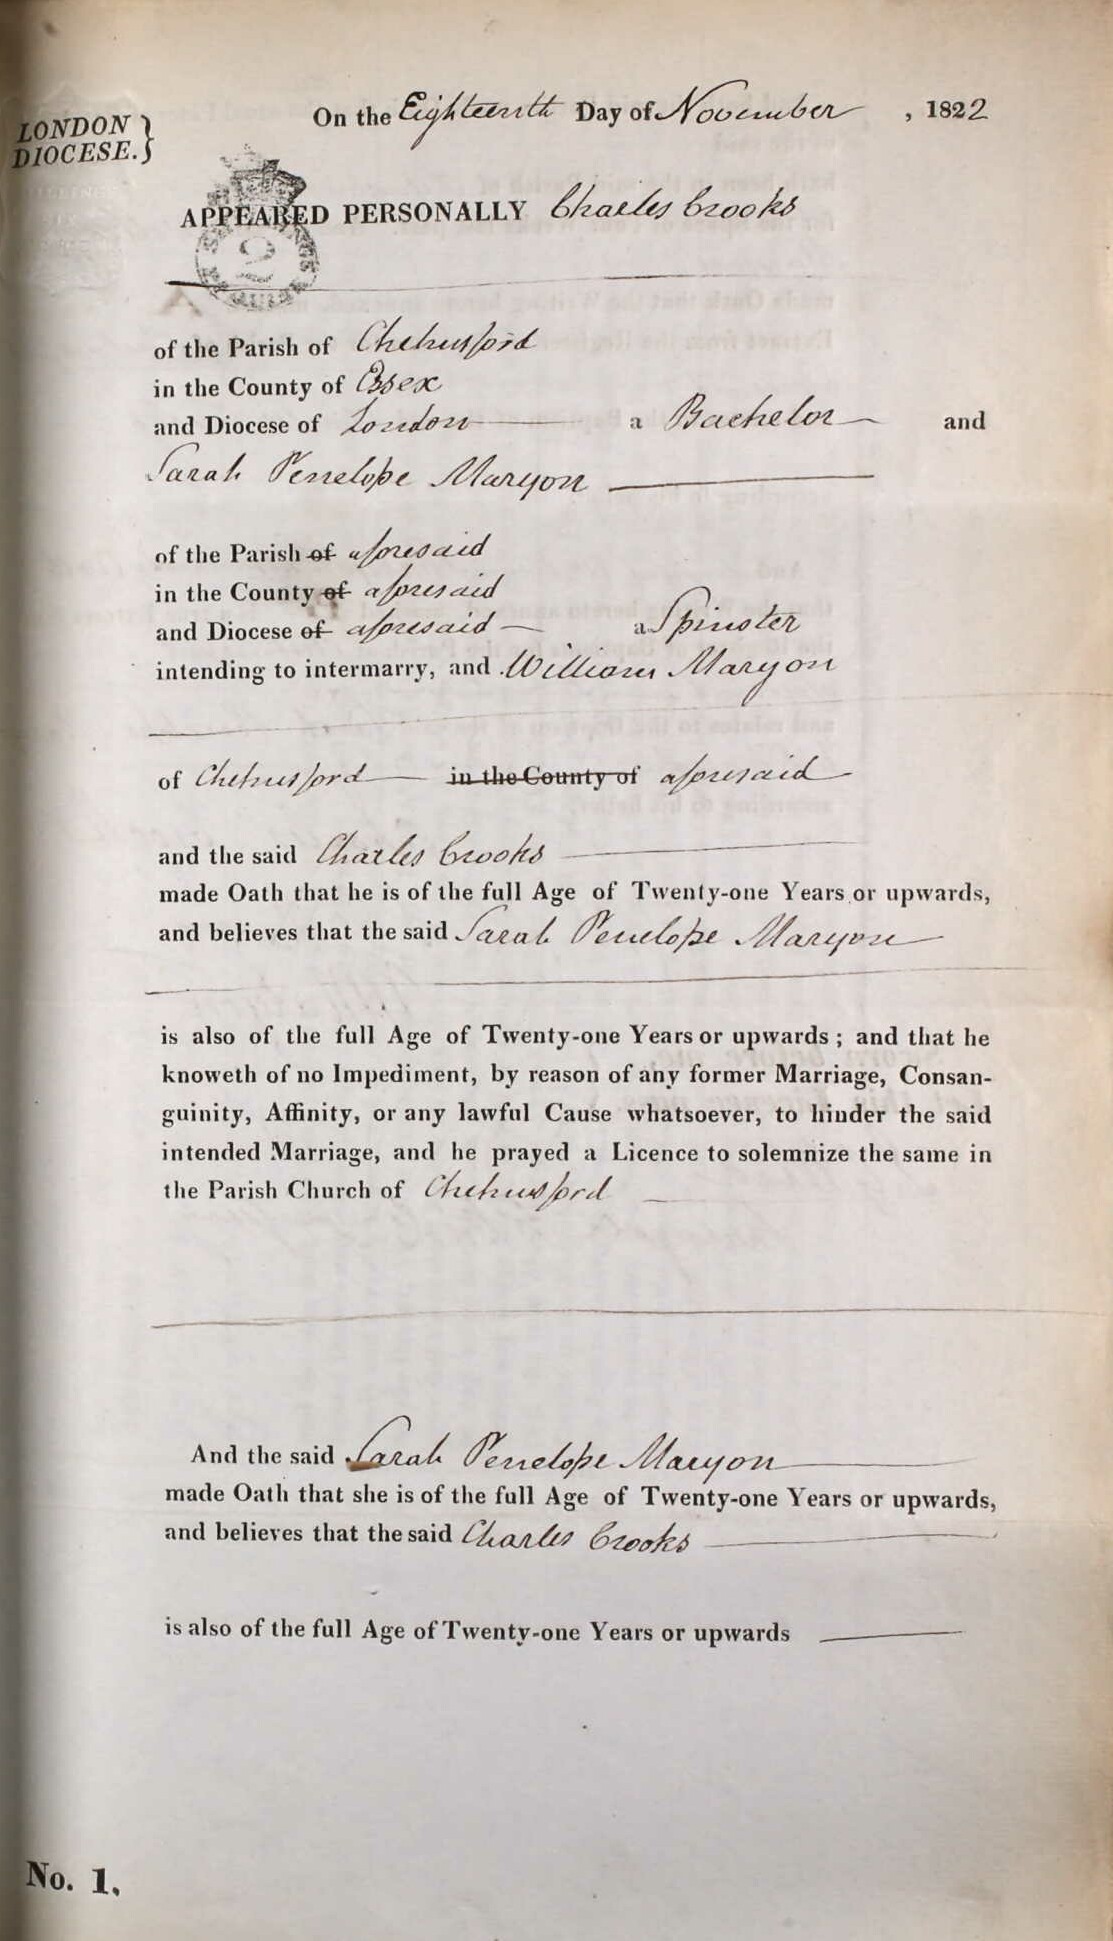 LONDON
DIOCESE.}
On the Eighteenth Day of November, 1822
APPEARED PERSONALLY Charles Crooks
2
of the Parish of Chelmsford
in the County of Essex
and Diocese of London a Bachelor and
Sarah Penelope Maryon
of the Parish of aforesaid
in the County of aforesaid
and Diocese of aforesaid a Spinster
intending to intermarry, and William Maryon
of Chelmsford in the County of aforesaid
and the said Charles Crooks
made Oath that he is of the full Age of Twenty-one Years or upwards,
and believes that the said Sarah Penelope Maryon
is also of the full Age of Twenty-one Years or upwards ; and that he
knoweth of no Impediment, by reason of any former Marriage, Consan-
guinity, Affinity, or any lawful Cause whatsoever, to hinder the said
intended Marriage, and he prayed a Licence to solemnize the same in
the Parish Church of Chelmsford
And the said Sarah Penelope Maryon
made Oath that she is of the full Age of Twenty-one Years or upwards,
and believes that the said Charles Crooks
is also of the full Age of Twenty-one Years or upwards
No. 1.